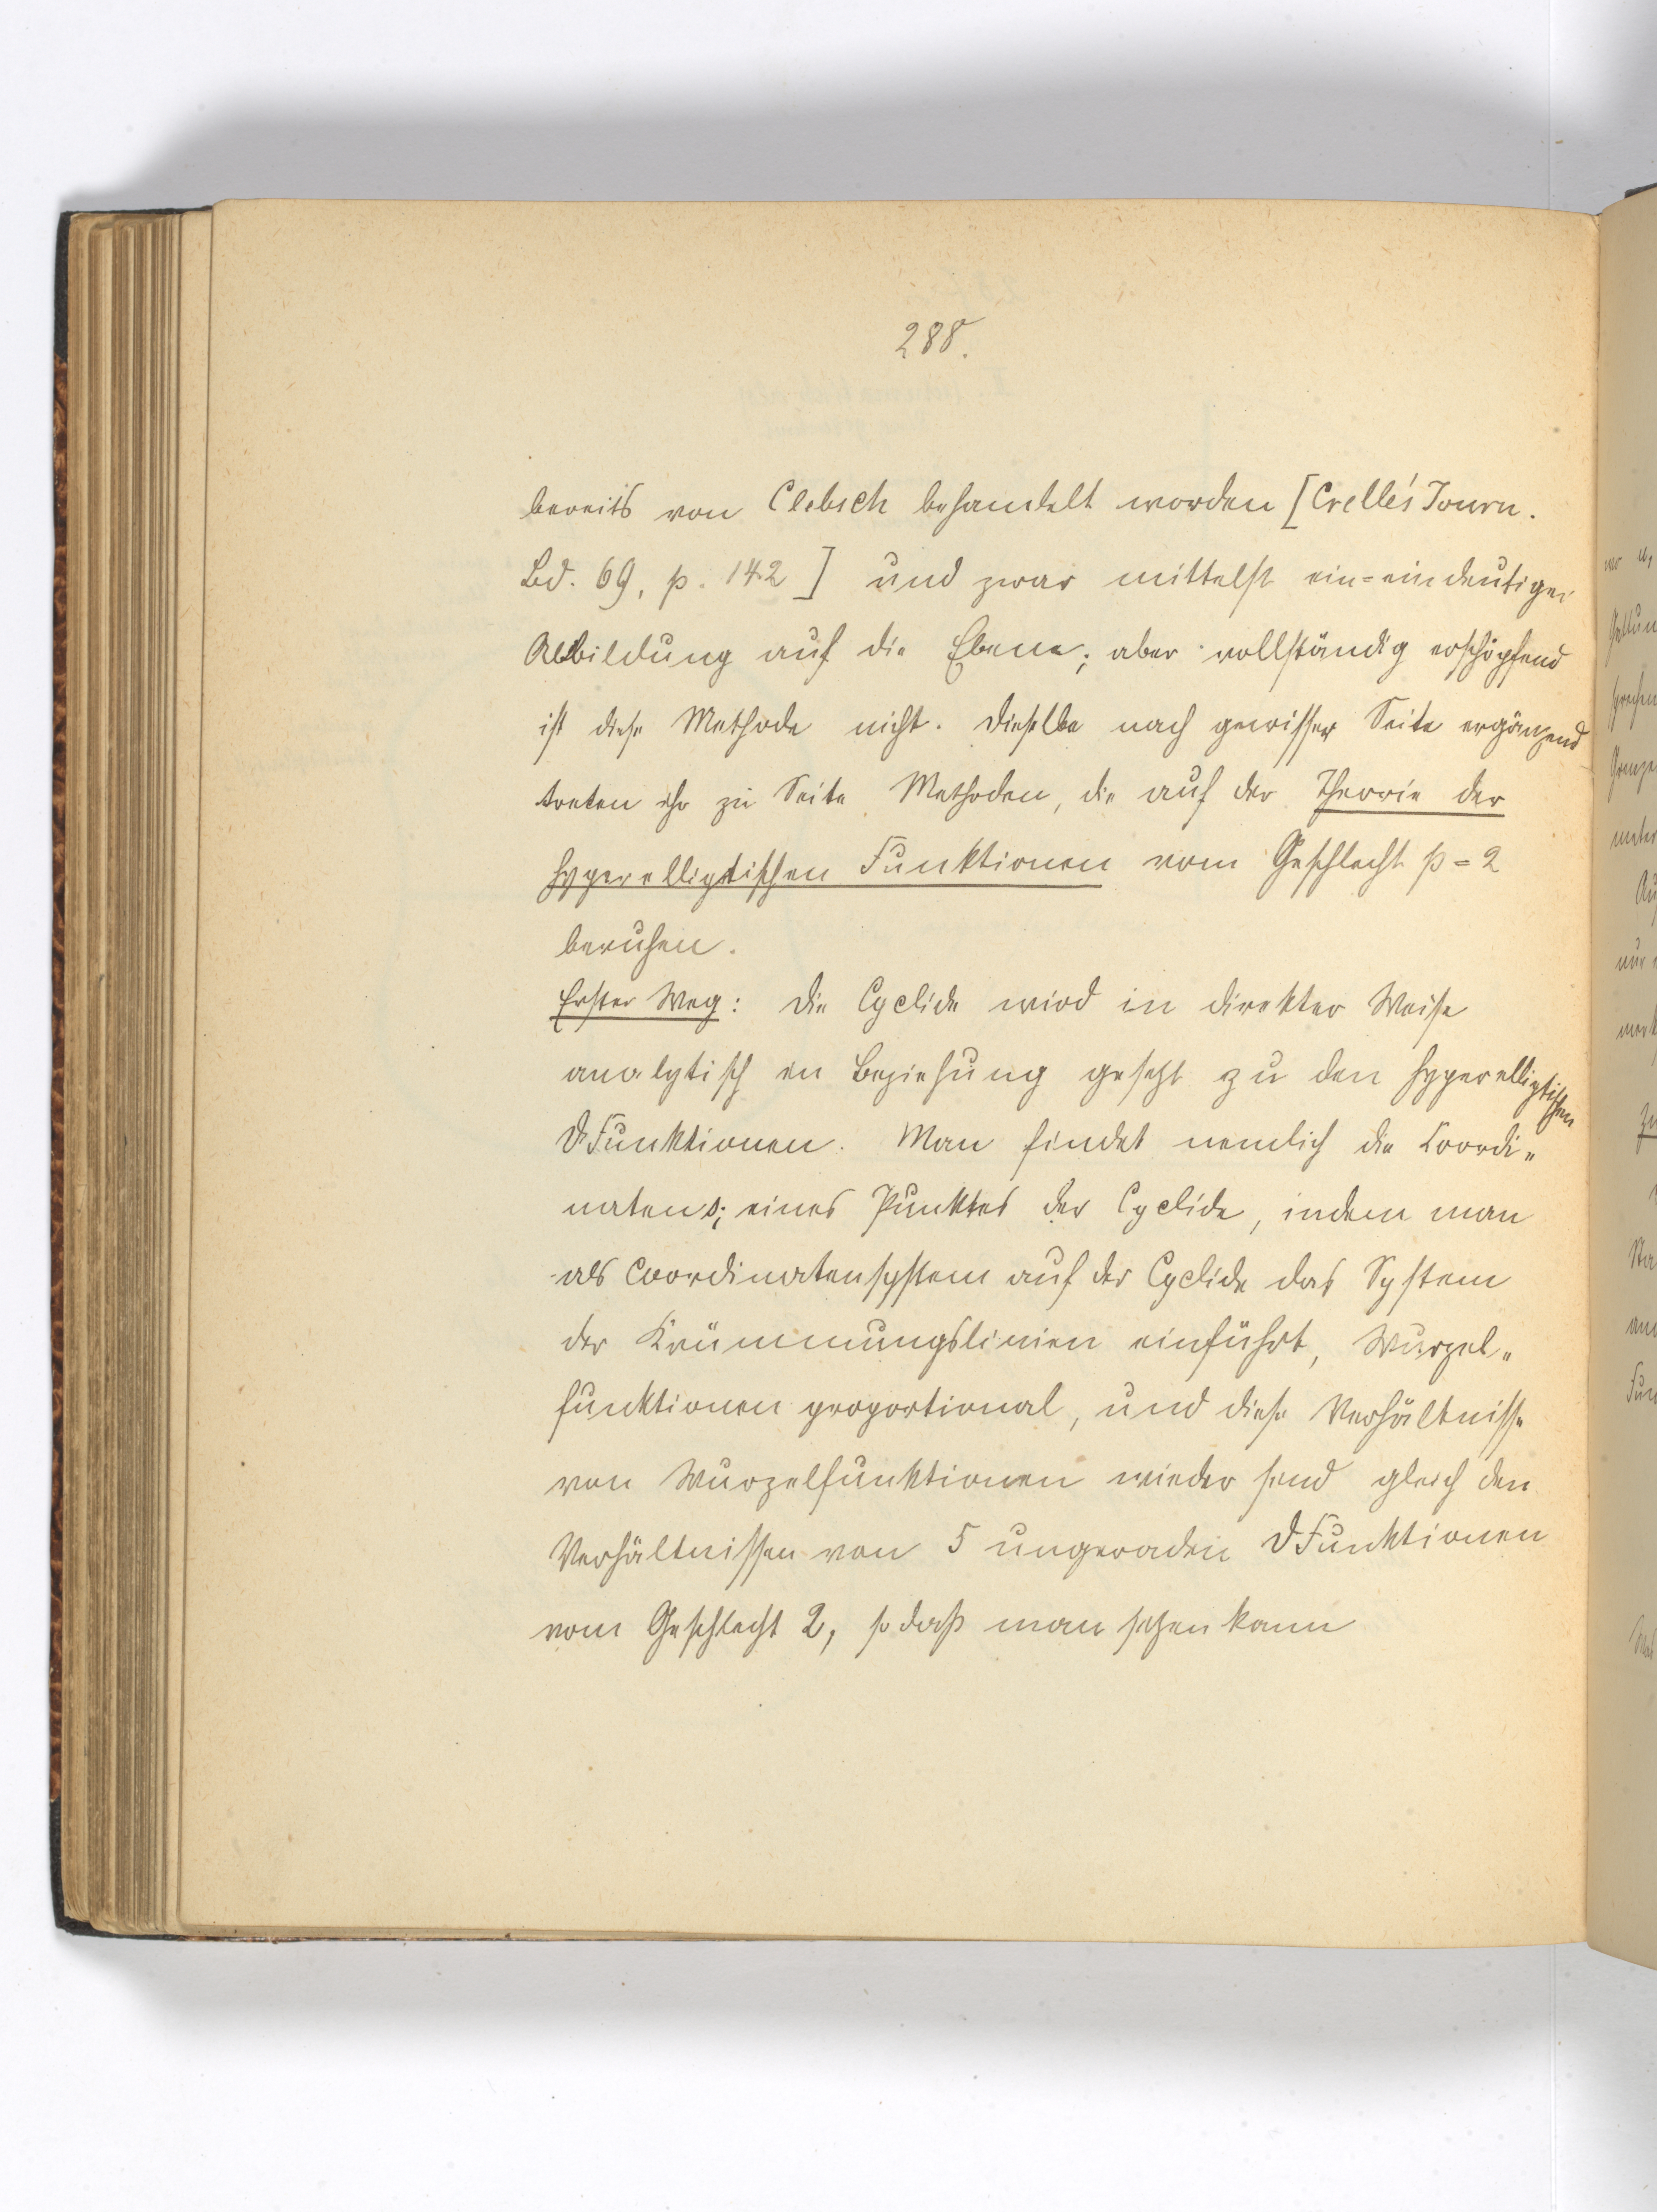 288.
bereits von Clebsch behandelt worden [Crelle's Journ.
Bd. 69, p. 142] und zwar mittelst ein=eindeutiger
Abbildung auf die Ebene; aber vollständig erschöpfend
ist diese Methode nicht. Dieselbe nach gewisser Seite ergänzend
treten ihr zu Seite Methoden, die auf der Theorie der
hyperelliptischen Funktionen vom Geschlecht p=2
beruhen.
Erster Weg: Die Cyclide wird in direkter Weise
analytisch in Beziehung gesetzt zu den hyperelliptischen
ϑFunktionen. Man findet nemlich die Coordi„
naten s; eines Punktes der Cyclide, indem man
als Coordinatensystem auf der Cyclide das System
der Krümmungslinien einführt, Wurzel„
funktionen proportional, und diese Verhältnisse
von Wurzelfunktionen wieder sind gleich den
Verhältnissen von 5 ungeraden ϑFunktionen
vom Geschlecht 2, so daß man setzen kann